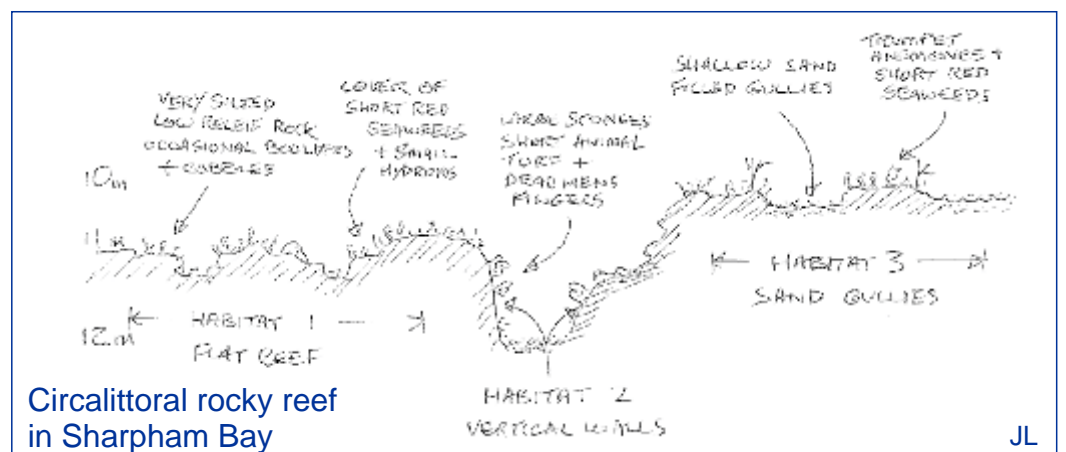 VERY SILTED
LOW RELEIF ROCK
OCCASIONAL BOULDERS
+ COBBLES
COVER OF
SHORT RED
SEAWEEDS
+ SMALL
HYDROIDS
SPONGES
SHORT ANIMAL
TURF +
DEAD MENS
FINGERS
SHALLOW SAND
FILLED GULLIES
TRUMPET
ANEMONES +
SHORT RED
SEAWEEDS
10m
11m
12m
HABITAT 1
FLAT REEF
HABITAT 2
VERTICAL WALLS
HABITAT 3
SAND GULLIES
Circalittoral rocky reef
in Sharpham Bay
JL